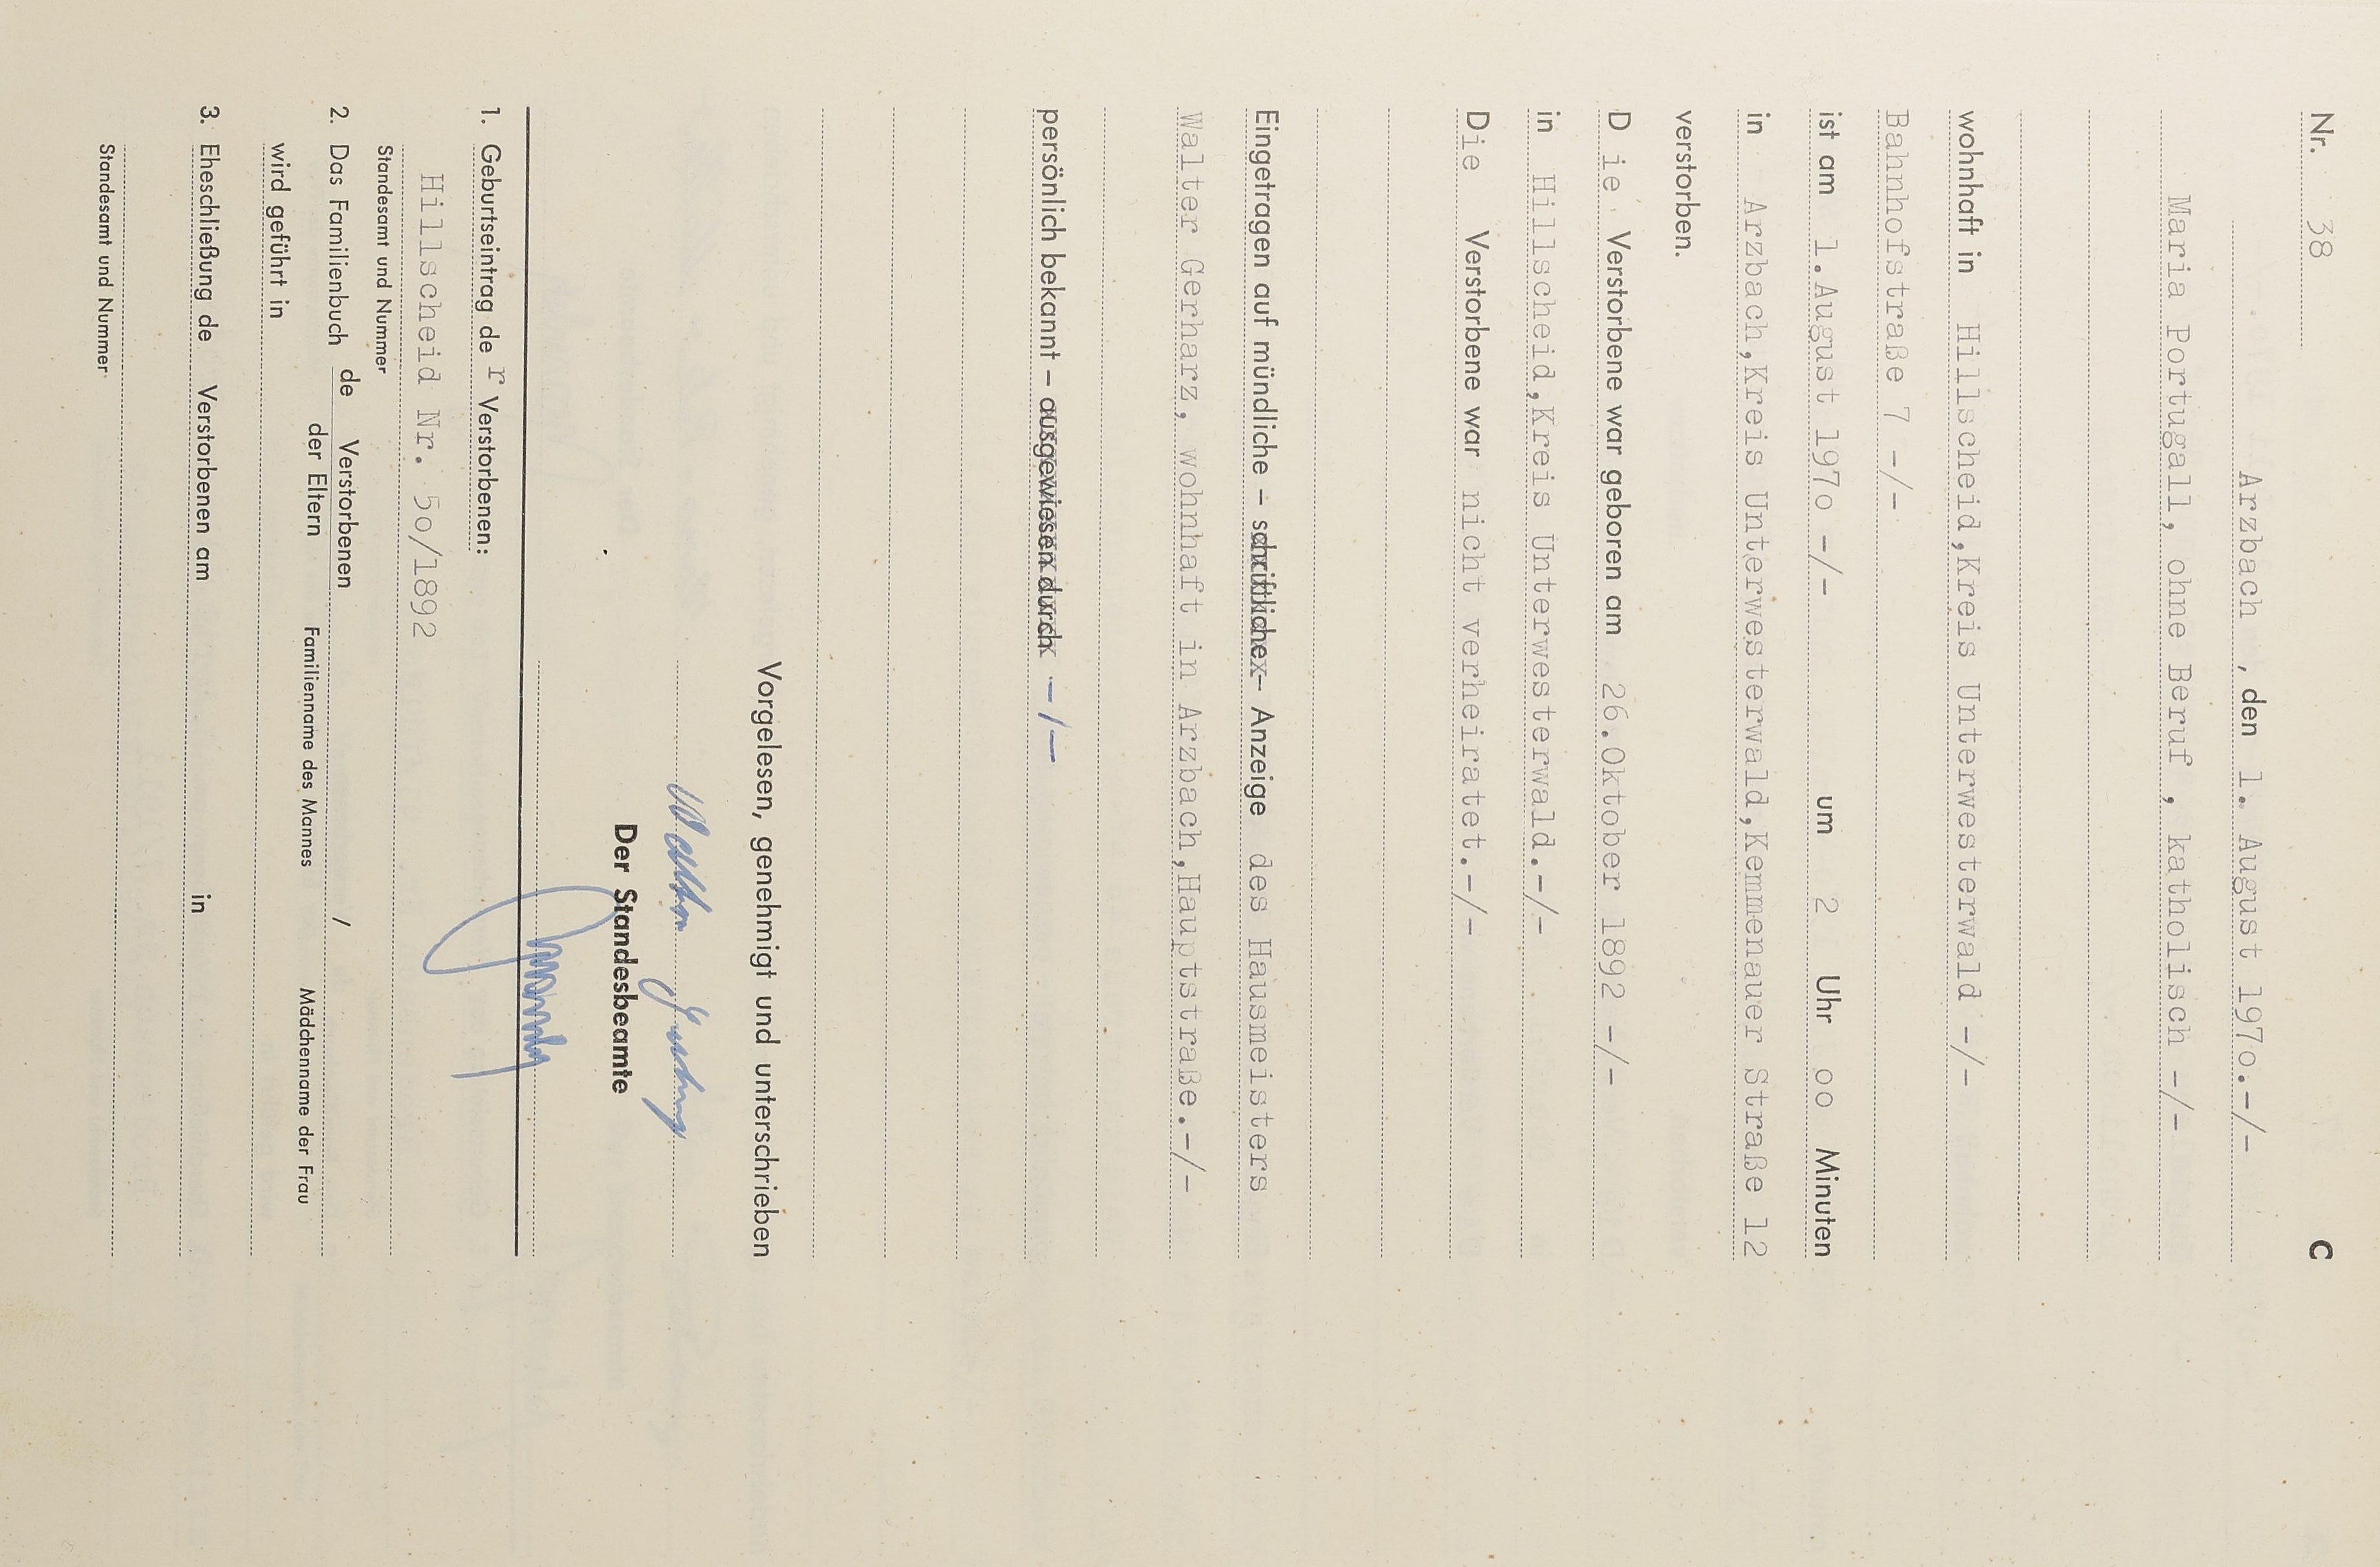 Nr. 38 C
Arzbach , den 1. August 197o.-/-
Maria Portugall, ohne Beruf , katholisch -/-
wohnhaft in Hillscheid,Kreis Unterwesterwald -/-
Bahnhofstraße 7 -/-
ist am 1.August 197o -/- um 2 Uhr oo Minuten
in Arzbach,Kreis Unterwesterwald,Kemmenauer Straße 12
verstorben.
D ie Verstorbene war geboren am 26.Oktober 1892 -/-
in Hillscheid,Kreis Unterwesterwald.-/-
Die Verstorbene war nicht verheiratet.-/-
Eingetragen auf mündliche – schriftliche – Anzeige des Hausmeisters
Walter Gerharz, wohnhaft in Arzbach,Hauptstraße.-/-
persönlich bekannt – ausgewiesen durch -/-
Vorgelesen, genehmigt und unterschrieben
Walter
Der Standesbeamte
1. Geburtseintrag de r Verstorbenen:
Hillscheid Nr. 5o/1892
Standesamt und Nummer
2. Das Familienbuch de Verstorbenen /
der Eltern Familienname des Mannes Mädchenname der Frau
wird geführt in
3. Eheschließung de Verstorbenen am in
Standesamt und Nummer